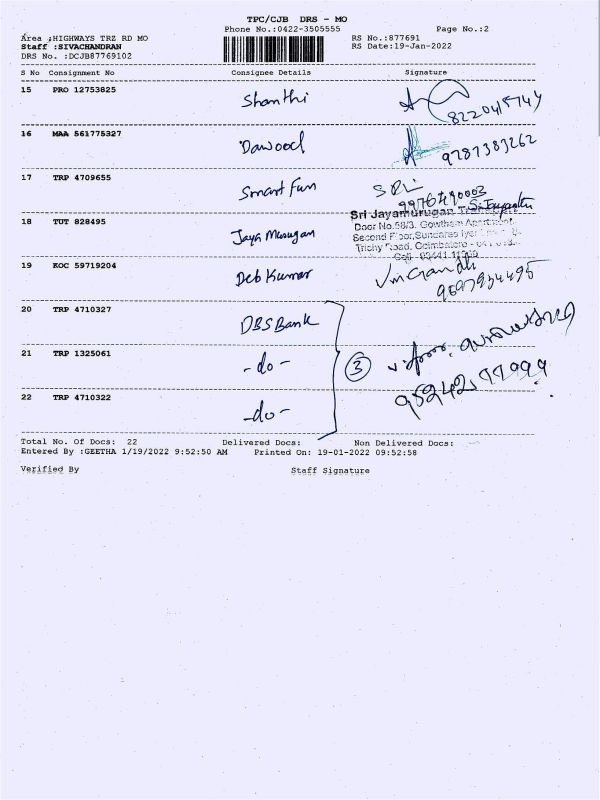 TPC/CJB DRS - MO
Phone No.:0422-3505555 Page No.:2
Area :HIGHWAYS TRZ RD MO RS No.:877691
Staff :SIVACHANDRAN RS Date:19-Jan-2022
DRS No. :DCJB87769102
S No Consignment No Consignee Details Signature
15 PRO 12753825 Shanthi
16 MAA 561775327 Dawood 9787383262
17 TRP 4709655 Smart Fun
18 TUT 828495 Jaya Murugan
Sri Jayamurugan
Door No.58/3, Gowtham
Second Floor, Sundaras Iyer
Trichy Road, Coimbatore
19 KOC 59719204 Deb Kumar
20 TRP 4710327 DBS Bank
21 TRP 1325061 -do- 3
22 TRP 4710322 -do-
Total No. Of Docs: 22 Delivered Docs: Non Delivered Docs:
Entered By :GEETHA 1/19/2022 9:52:50 AM Printed On: 19-01-2022 09:52:58
Verified By Staff Signature